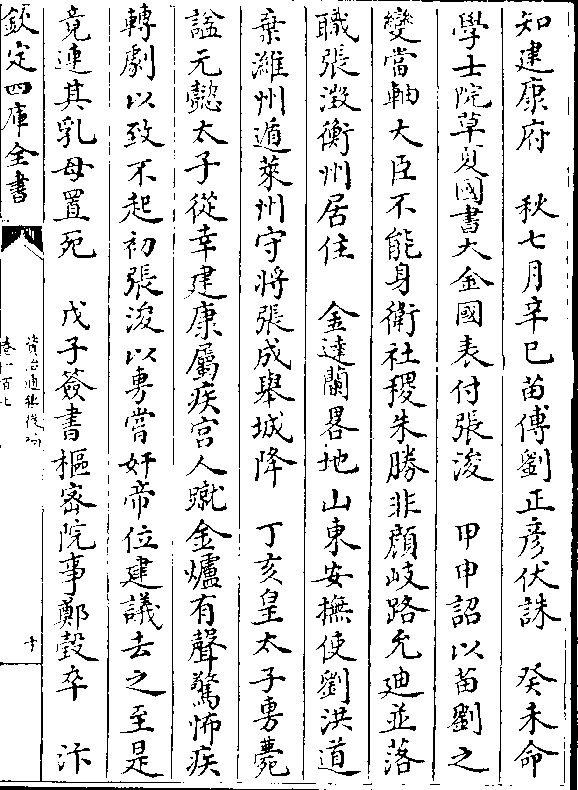 知建康府　秋七月辛巳苗傅劉正彦伏誅　癸未命
學士院草夏國書大金國表付張浚　甲申詔以苗劉之
變當軸大臣不能身衛社稷朱勝非顔岐路允迪並落
職張澂衡州居住　金達蘭畧地山東安撫使劉洪道
棄濰州遁萊州守將張成舉城降　丁亥皇太子旉薨
諡元懿太子從幸建康屬疾宫人蹴金爐有聲驚怖疾
轉劇以致不起初張浚以旉嘗奸帝位建議去之至是
竟連其乳母置死　戊子簽書樞密院事鄭瑴卒　汴
欽定四庫全書
資治通鑑後編
卷一百七
十